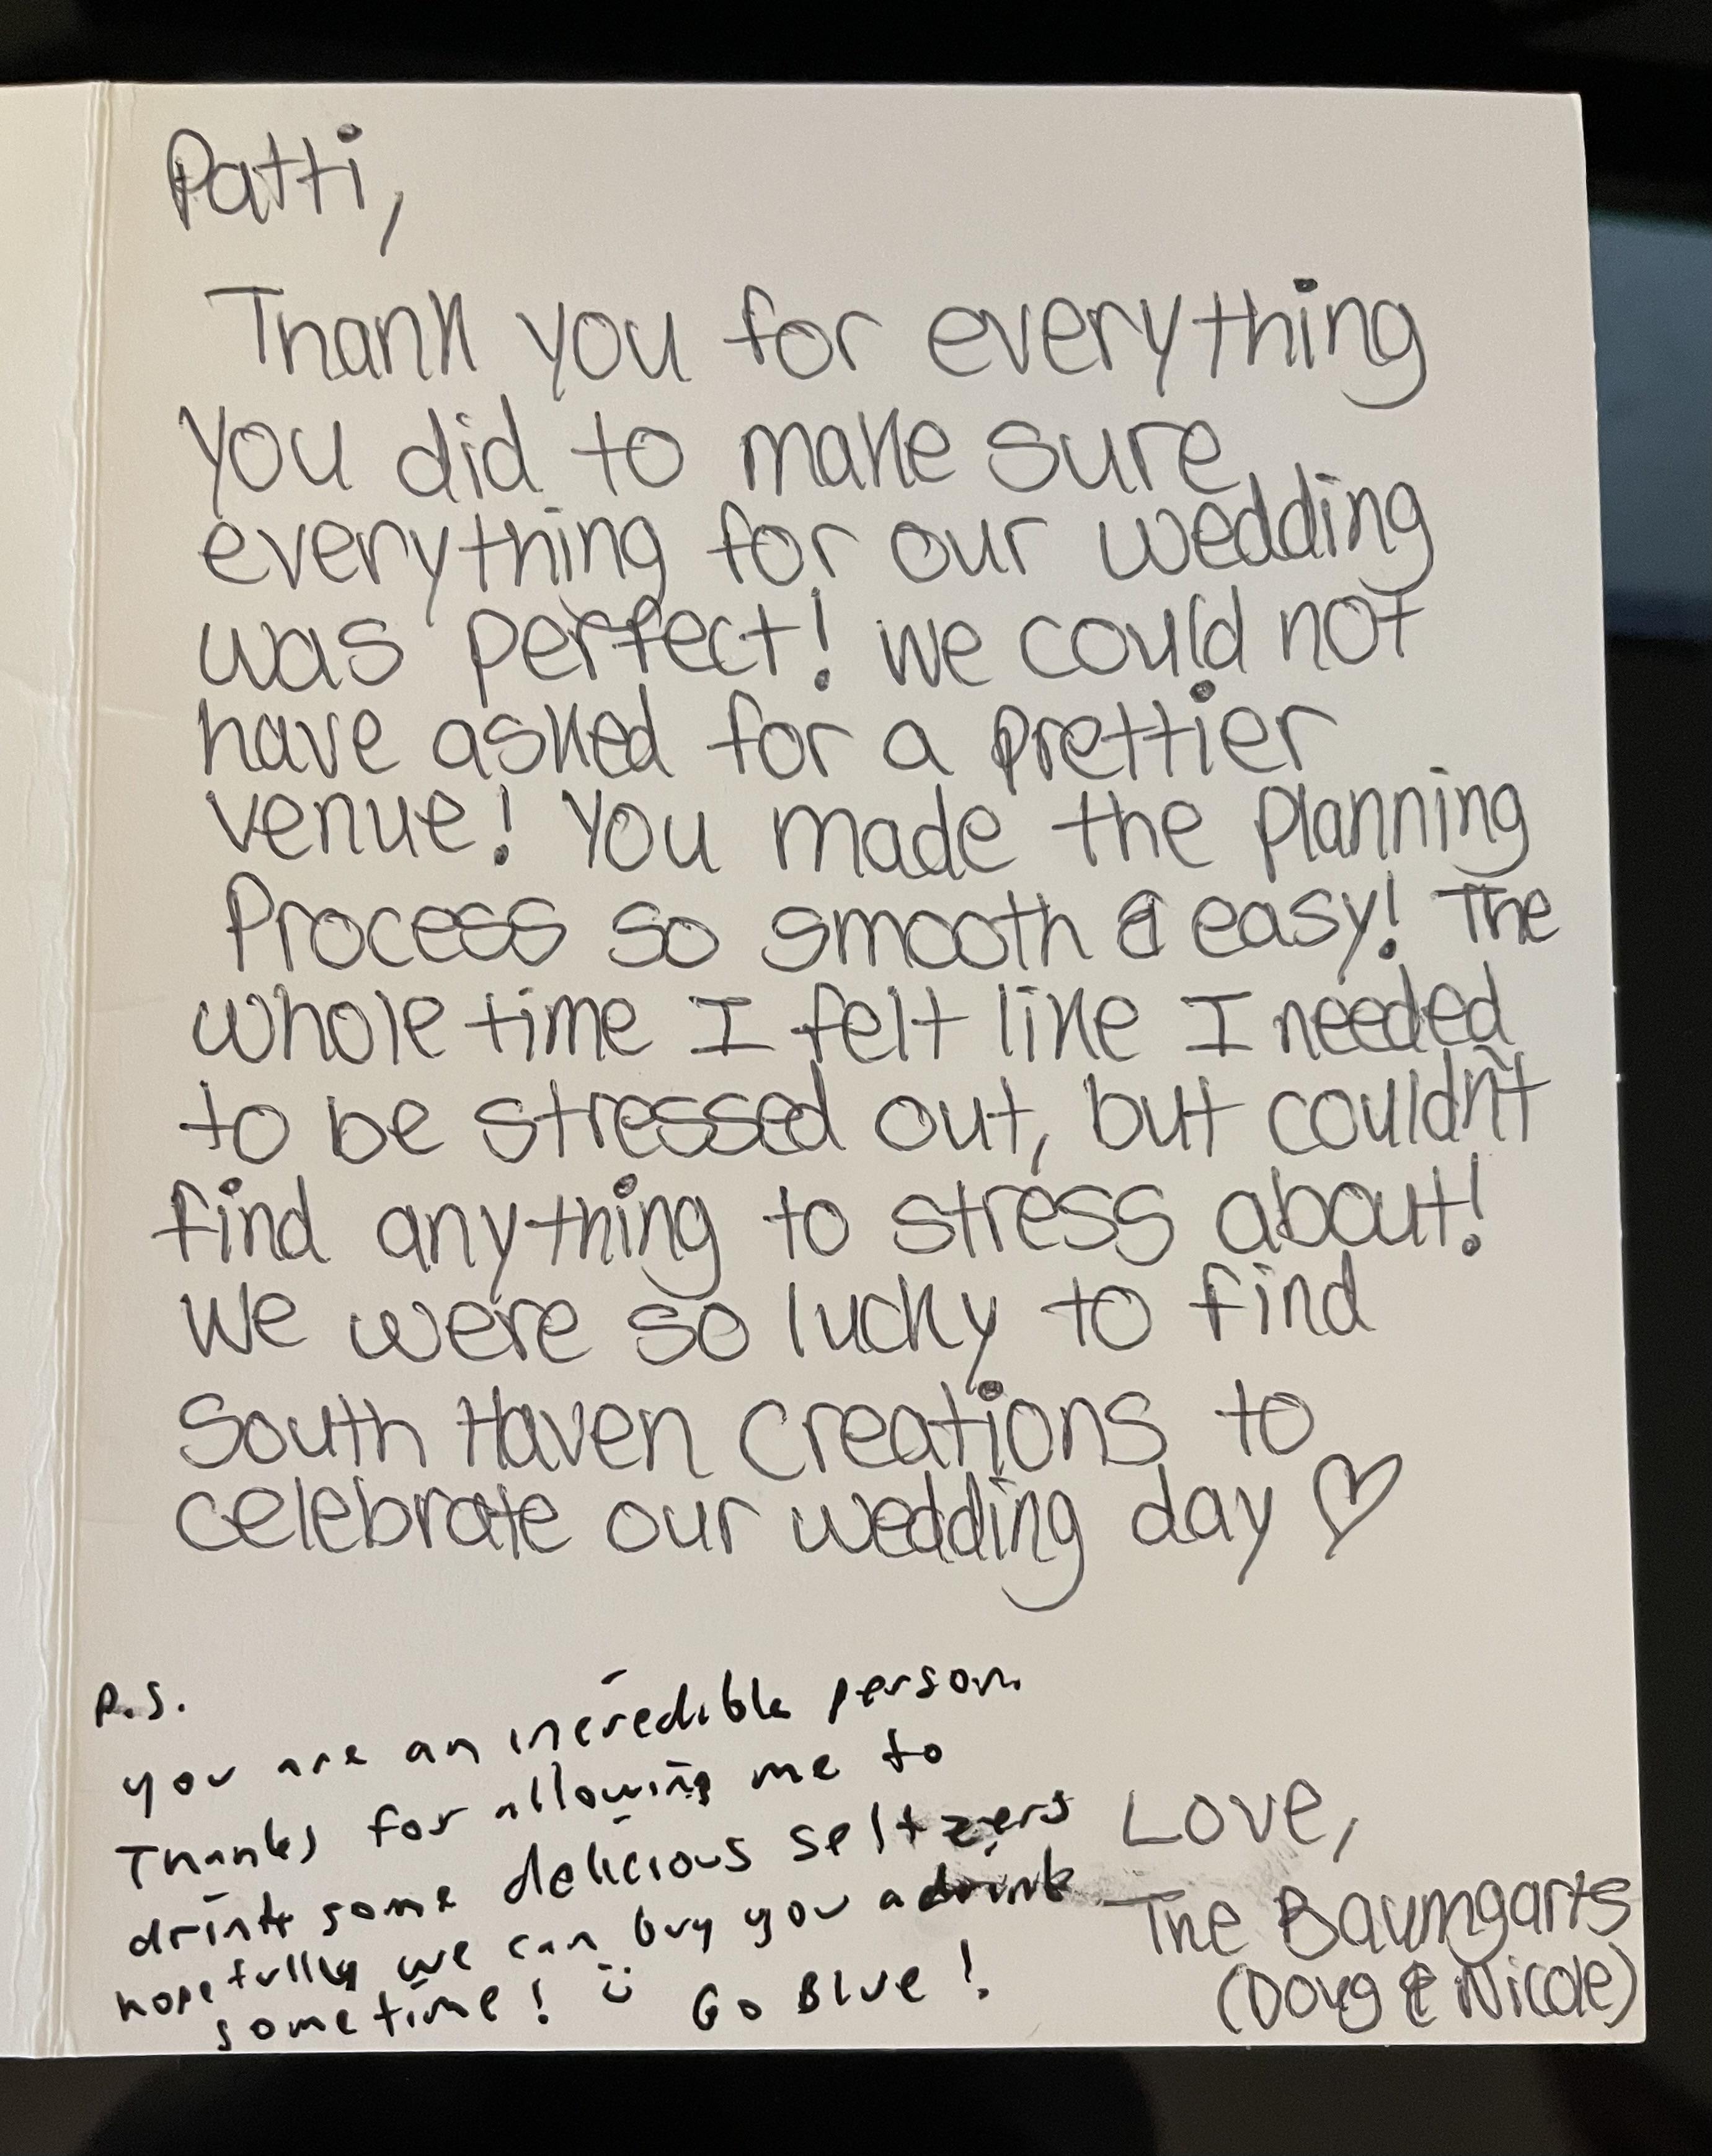 Patti,
Thank you for everything
you did to make sure
everything for our wedding
was perfect! We could not
have asked for a prettier
venue! You made the planning
Process so smooth & easy! The
whole time I felt like I needed
to be stressed out, but couldn't
find anything to stress about!
We were so lucky to find
South Haven Creations to
celebrate our wedding day ♡
P.S.
you are an incredible person
Thanks for allowing me to
drink some delicious seltzers
hopefully we can buy you a drink
sometime! :) Go Blue!
Love,
The Baumgarts
(Doug & Nicole)